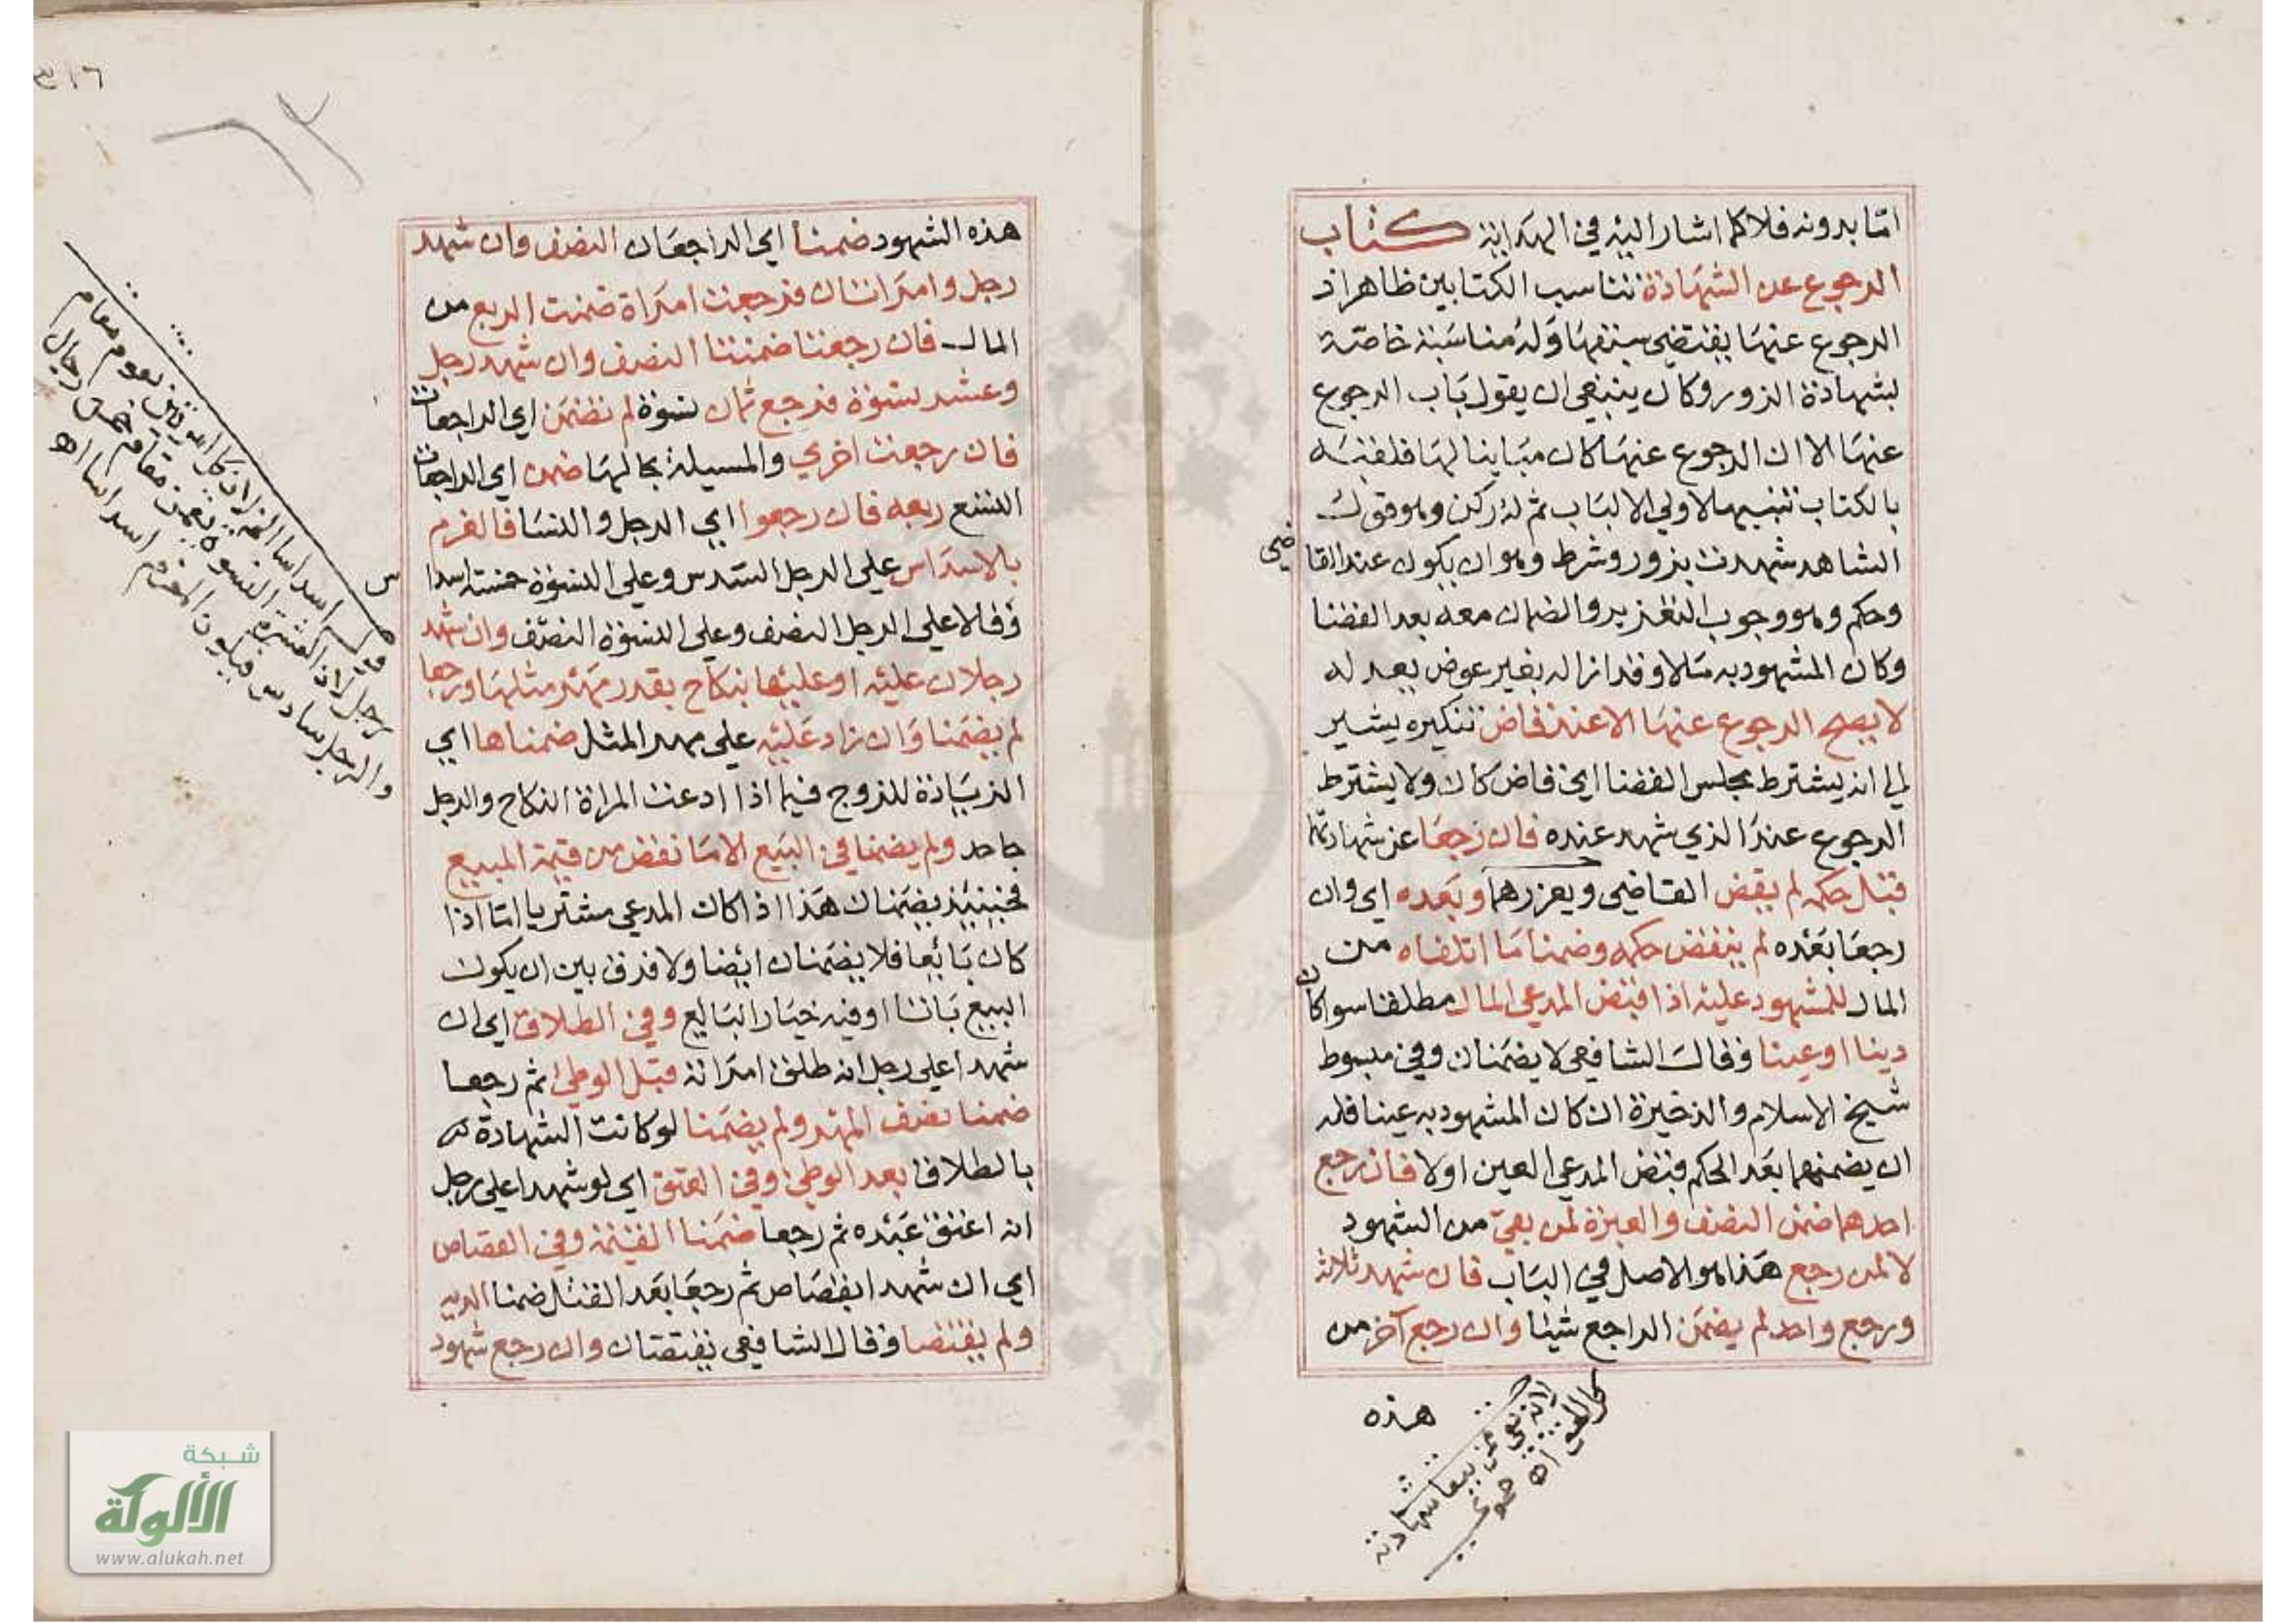 اما بدونه فلا كما اشار اليه في الهداية كتاب
الرجوع عن الشهادة تناسب الكتابين ظاهر اذ
الرجوع عنها يقتضي سبقها وله مناسبة خاصة
بشهادة الزور وكان ينبغي ان يقول باب الرجوع
عنها الا ان الرجوع عنها كان مباينا لها فلقبه
بالكتاب تنبيها لاولي الالباب ثم له ركن وهو قول
الشاهد شهدت بزور وشرط وهو ان يكون عند القاضي
وحكم وهو وجوب التعزير والضمان معه بعد القضا
وكان المشهود به مالا وقد ازاله بغير عوض يعد له
لا يصح الرجوع عنها الا عند قاض تنكيره يشير
الي انه يشترط مجلس القضا اي قاض كان ولا يشترط
الرجوع عند الذي شهد عنده فان رجعا عن شهادتهما
قبل حكمه لم يقض القاضي ويعزرهما وبعده اي وان
رجعا بعده لم ينقض حكمه وضمنا ما اتلفاه من
المال للمشهود عليه اذا قبض المدعي المال مطلقا سوا كان
دينا او عينا وقال الشافعي لا يضمنان وفي مبسوط
شيخ الاسلام والذخيرة ان كان المشهود به عينا فله
ان يضمنهما بعد الحكم قبض المدعي العين اولا فان رجع
احدهما ضمن النصف والعبرة لمن بقي من الشهود
لا لمن رجع هذا هو الاصل في الباب فان شهد ثلاثة
ورجع واحد لم يضمن الراجع شيئا وان رجع آخر من
هذه
٣١٦
هذه الشهود ضمنا اي الراجعان النصف وان شهد
رجل وامراتان فرجعت امراة ضمنت الربع من
المال فان رجعتا ضمنتا النصف وان شهد رجل
وعشر نسوة فرجع ثمان نسوة لم تضمن اي الراجعات
فان رجعت اخري والمسيلة بحالها ضمن اي الراجعات
التسع ربعه فان رجعوا اي الرجل والنسا فالغرم
بالاسداس علي الرجل السدس وعلي النسوة خمسة اسداس
وقالا علي الرجل النصف وعلي النسوة النصف وان شهد
رجلان عليه او عليها بنكاح بقدر مهر مثلها ورجعا
لم يضمنا وان زاد عليه علي مهر المثل ضمناها اي
الزيادة للزوج فيما اذا ادعت المراة النكاح والرجل
جاحد ولم يضمنا في البيع الا ما نقض من قيمة المبيع
فحينيذ يضمنان هذا اذا كان المدعي مشتريا اما اذا
كان بائعا فلا يضمنان ايضا ولا فرق بين ان يكون
البيع باتا او فيه خيار البايع وفي الطلاق اي ان
شهدا علي رجل انه طلق امراته قبل الوطئ ثم رجعا
ضمنا نصف المهر ولم يضمنا لو كانت الشهادة
بالطلاق بعد الوطئ وفي العتق اي لو شهدا علي رجل
انه اعتق عبده ثم رجعا ضمنا القيمة وفي القصاص
اي ان شهدا بقصاص ثم رجعا بعد القتل ضمنا الدية
ولم يقتصا وقال الشافعي يقتصان وان رجع شهود
شبكة
الألوكة
www.alukah.net